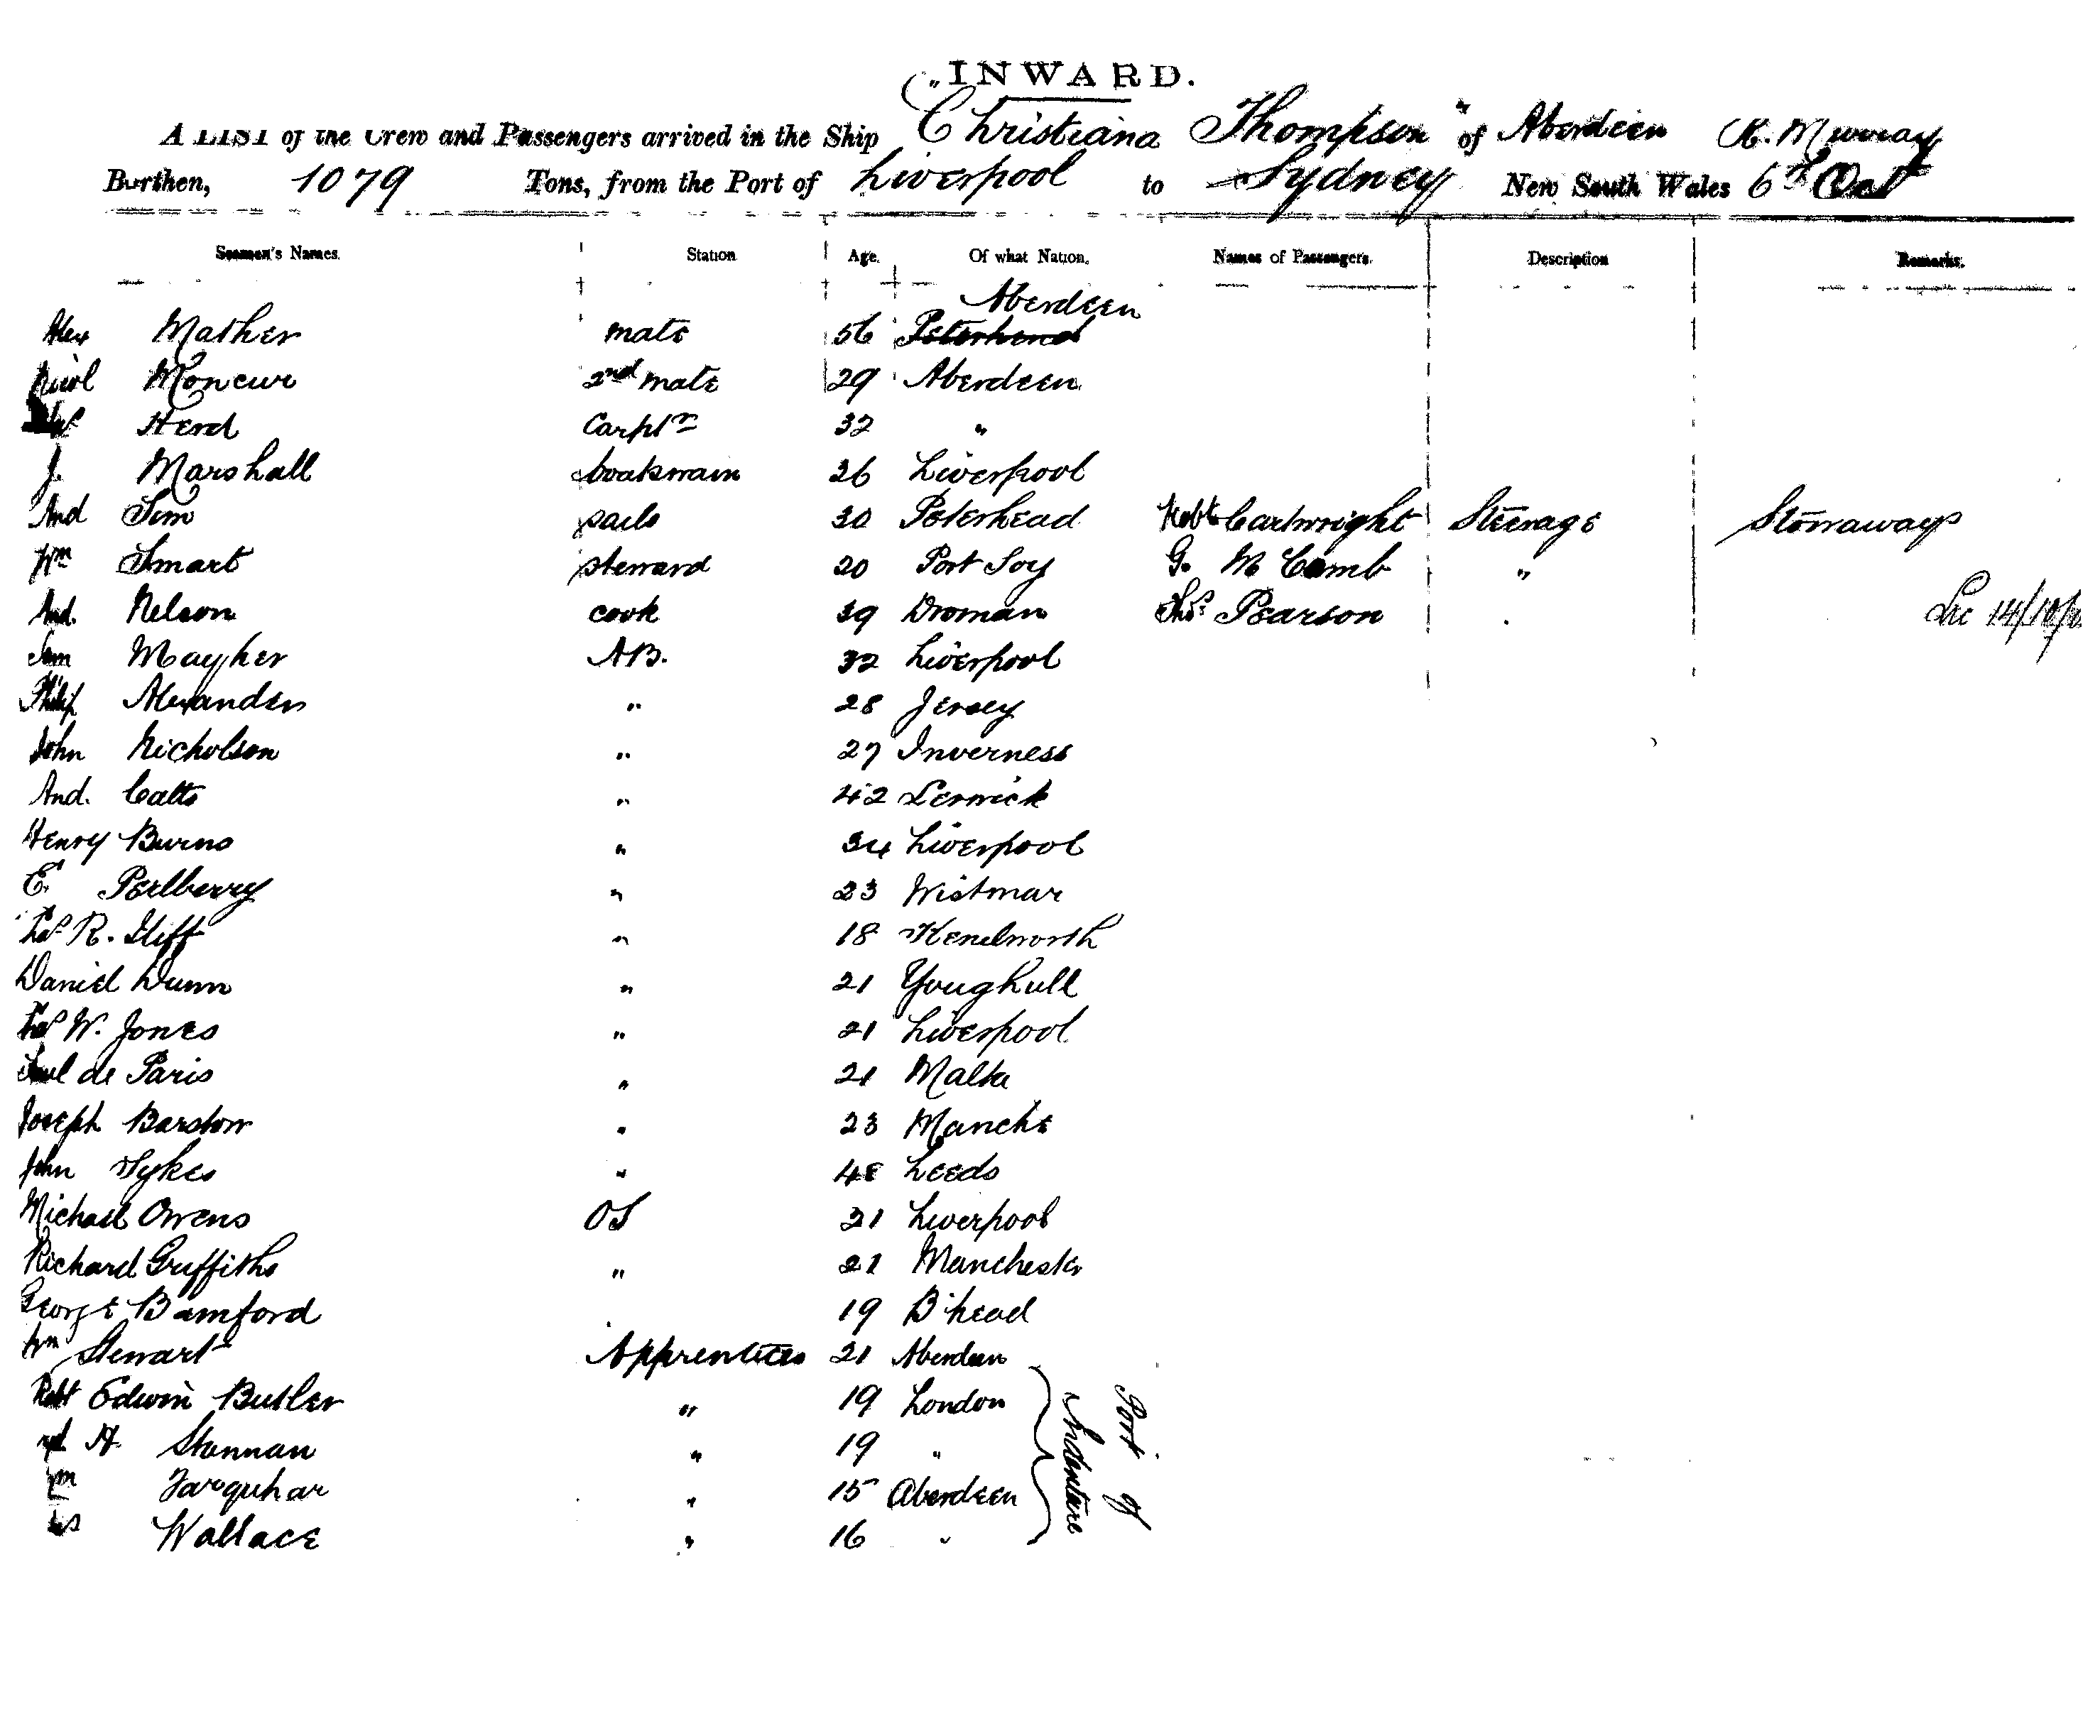 INWARD.
A LIST of the Crew and Passengers arrived in the Ship "Christiana Thompson" of Aberdeen K. Murray
Burthen, 1079 Tons, from the Port of Liverpool to Sydney New South Wales 6th Oct
Seamen's Names. Station Age. Of what Nation. Names of Passengers. Description Remarks.
Aberdeen
Alex Mather mate 56 Peterhead
Nicol Moncur 2nd mate 29 Aberdeen
Herd Carptr 32 "
J. Marshall boatswain 26 Liverpool
And Sim sails 30 Peterhead Robt Cartwright Steerage Stowaways
Wm Smart steward 20 Port Soy G. McComb "
And. Nelson cook 39 Droman Thos. Pearson .
14/10/
Sam Mayher AB. 32 Liverpool
Philip Alexander " 28 Jersey
John Nicholson " 27 Inverness
And. Catto " 42 Lerwick
Henry Burns " 34 Liverpool
E. Perlberry " 23 Wistmar
R. Iliff " 18 Kenelworth
Daniel Dunn " 21 Youghull
W. Jones " 21 Liverpool
de Paris " 21 Malta
Joseph Barstow " 23 Manchr
John Sykes " 48 Leeds
Michael Owens OS 21 Liverpool
Richard Griffiths " 21 Manchester
George Bamford 19 B'head
Wm Stewart Apprentices 21 Aberdeen
Robt Edwin Butler " 19 London
H. Stannan " 19 "
Wm Farquhar " 15 Aberdeen
Wallace " 16 "
Port of
Indenture